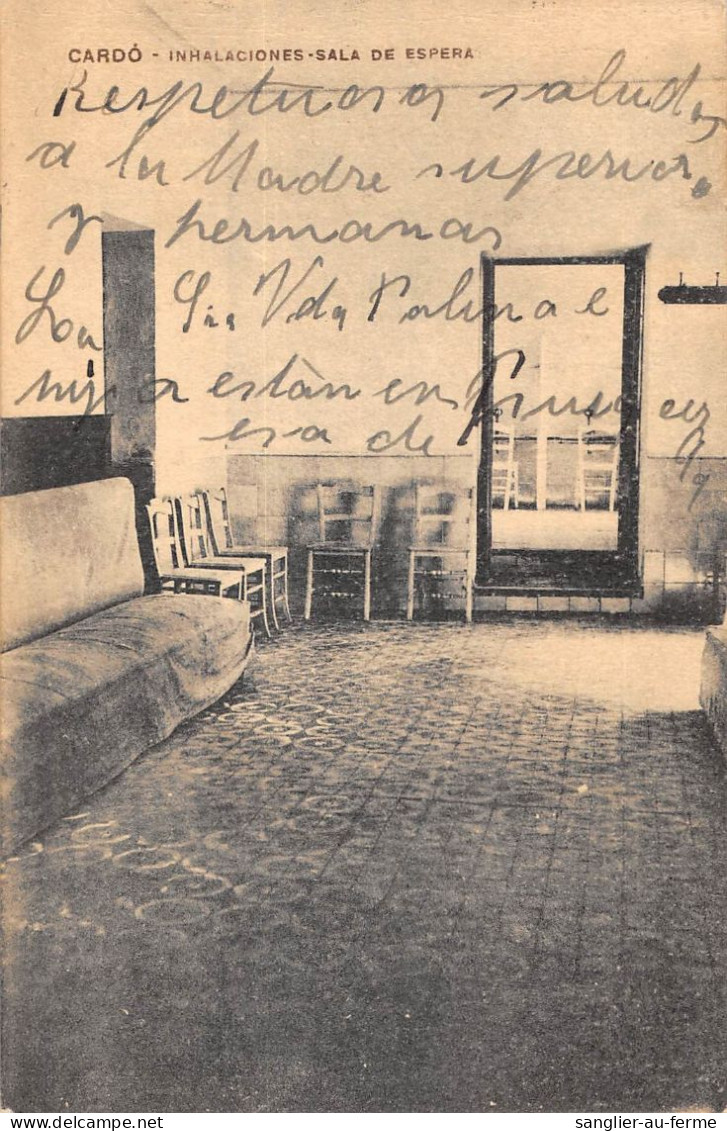 CARDÓ - INHALACIONES-SALA DE ESPERA
Respetuosos saludos
a la Madre superiora
y hermanas
La Sra Vda Palina e
hija están en
esa de
sanglier-au-ferme